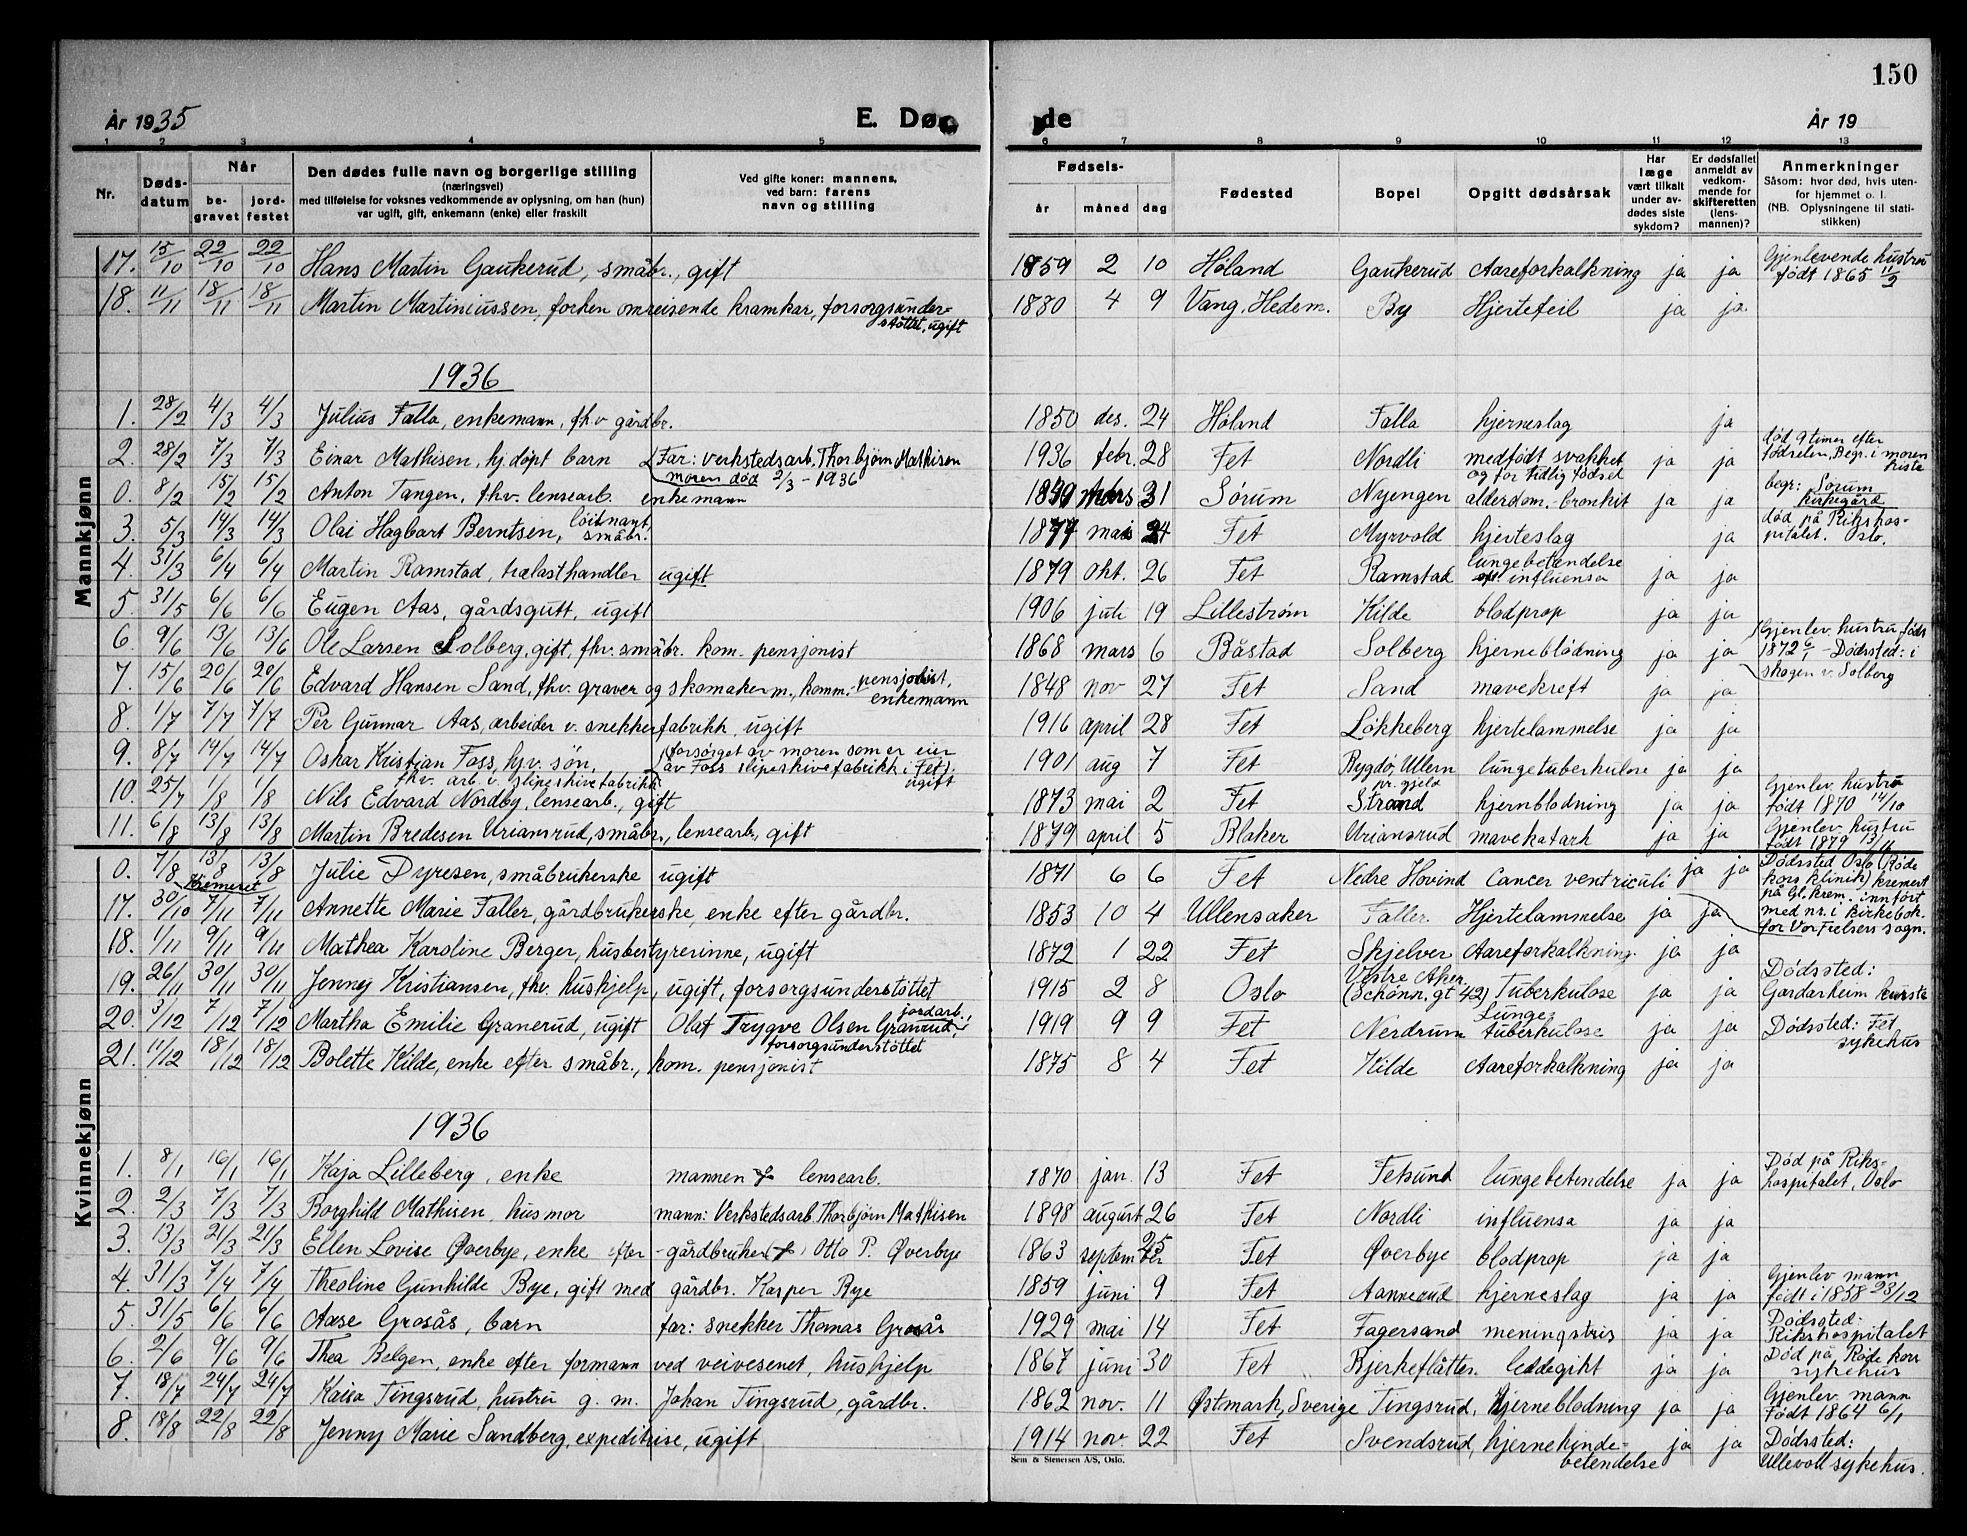 150
År 1935 E. Døde År 19
1 2 3 4 5 6 7 8 9 10 11 12 13
Nr. Døds-datum Når be-gravet jord-festet Den dødes fulle navn og borgerlige stilling (næringsvei) med tilføielse for voksnes vedkommende av oplysning, om han (hun) var ugift, gift, enkemann (enke) eller fraskilt Ved gifte koner: mannens, ved barn: farens navn og stilling Fødsels- år måned dag Fødested Bopel Opgitt dødsårsak Har læge vært tilkalt under av-dødes siste sykdom? Er dødsfallet anmeldt av vedkom-mende for skifteretten (lens-mannen)? Anmerkninger Såsom: hvor død, hvis uten-for hjemmet o. l. (NB. Oplysningene til stati-stikken)
Mannkjønn
17. 15/10 22/10 22/10 Hans Martin Gaukerud, småbr., gift 1859 2 10 Høland Gaukerud Aareforkalkning ja ja Gjenlevende hustru født 1865 11/2
18. 11/11 18/11 18/11 Martin Martiniussen, forhen omreisende kramkar, forsorgsunder-støttet, ugift 1880 4 9 Vang, Hedem. By Hjertefeil ja ja
1936
1. 28/2 4/3 4/3 Julius Falla, enkemann, fhv gårdbr. 1850 des. 24 Høland Falla hjerneslag ja
2. 28/2 7/3 7/3 Einar Mathisen, hj.døpt barn Far: verkstedsarb. Thorbjørn Mathisen moren død 2/3-1936 1936 febr. 28 Fet Nordli medfødt svakhet og for tidlig fødsel ja ja død 9 timer efter fødselen, Begr. i moren kiste
0. 8/2 15/2 15/2 Anton Tangen, fhv. lensearb. enkemann 1849 mars 31 Sørum Nyengen alderdom. bronkit ja ja begr: Sørum kirkegård
3. 5/3 14/3 14/3 Olai Hagbart Berntsen, løitnant, småbr. 1877 mai 24 Fet Myrvold hjerteslag ja død på Rikshos-pitalet. Oslo.
4. 31/3 6/4 6/4 Martin Ramstad, trelasthandler ugift 1879 okt. 26 Fet Ramstad lungebetendelse influensa ja ja
5. 31/5 6/6 6/6 Eugen Aas, gårdsgutt, ugift 1906 juli 19 Lillestrøm Kilde blodprop ja ja
6. 9/6 13/6 13/6 Ole Larsen Solberg, gift, fhv. småbr. kom. pensjonist 1868 mars 6 Båstad Solberg hjerneblødning ja ja Gjenlev. hustru føds 1872 - Dødssted: i skogen v. Solberg
7. 15/6 20/6 20/6 Edvard Hansen Sand, fhv. graver og skomakerm., komm. pensjonist, enkemann 1848 nov 27 Fet Sand mavekreft ja ja
8. 1/7 7/7 7/7 Per Gunnar Aas, arbeider v. snekkerfabrikk, ugift 1916 april 28 Fet Løkkeberg hjertelammelse ja ja
9. 8/7 14/7 14/7 Oskar Kristian Foss, hj.v. søn, fhv. arb. v. slipeskivefabrikk (forsørget av moren som er eier av Foss slipeskivefabrikk i Fet). ugift 1901 aug 7 Fet Bygdø, Ullern pr.gjeld lungetuberkulose ja ja
10. 25/7 1/8 1/8 Nils Edvard Nordby, lensearb., gift 1873 mai 2 Fet Strand hjernblødning ja ja Gjenlev. hustru født 1870 14/10
11. 6/8 13/8 13/8 Martin Bredesen Uriansrud, småbr., lensearb., gift 1879 april 5 Blaker Uriansrud mavekatarh ja ja Gjenlev. hustru født 1879 13/11
Kvinnekjønn
0. 7/8 13/8 13/8 Kremeret Julie Dyresen, småbrukerske ugift 1871 6 6 Fet Nedre Hovind Cancer ventriculi ja ja Dødssted Oslo (Røde kors klinik) kremert på Gl. krem. innført med nr. i kirkebok. for Vor Frelsers sogn.
17. 30/10 7/11 7/11 Annette Marie Faller, gårdbrukerske, enke efter gårdbr. 1853 10 4 Ullensaker Faller. Hjertelammelse ja ja
18. 1/11 9/11 9/11 Mathea Karoline Berger, husbestyrerinne, ugift 1872 1 22 Fet Skjelver Aareforkalkning. ja ja
19. 26/11 30/11 30/11 Jenny Kristiansen, fhv. hushjelp, ugift, forsorgsunderstøttet 1915 2 8 Oslo Vestre Aker (Schønn. gt 42) Tuberkulose ja ja Dødssted: Gardarheim
20. 3/12 7/12 7/12 Martha Emilie Granerud, ugift Olaf Trygve Olsen Granrud, jordarb. forsorgsunderstøttet 1919 9 9 Fet Nerdrum Lunge-tuberkulose ja ja Dødssted: Fet sykehus
21. 11/12 18/12 18/12 Bolette Kilde, enke efter småbr., kom. pensjonist 1875 8 4 Fet Kilde Aareforkalkning ja ja
1936
1. 8/1 16/1 16/1 Kaja Lilleberg, enke mannen + lensearb. 1870 jan. 13 Fet Fetsund lungebetendelse ja ja Død på Riks-hospitalet, Oslo
2. 2/3 7/3 7/3 Borghild Mathisen, husmor mann: Verkstedsarb. Thorbjørn Mathisen 1898 august 26 Fet Nordli influensa ja ja
3. 13/3 21/3 21/3 Ellen Lovise Øverbye, enke efter - gårdbruker (+) Otto P. Øverbye 1863 september 25 Fet Øverbye blodprop ja ja
4. 31/3 7/4 7/4 Theoline Gunhilde Bye, gift med gårdbr. Kasper Bye 1859 juni 9 Fet Aannerud hjerneslag ja ja Gjenlev. mann født i 1858 23/12
5. 31/5 6/6 6/6 Aase Grosås, barn far: snekker Thomas Grosås 1929 mai 14 Fet Fagersand meningstris ja ja Dødssted: Rikshospitalet
6. 2/6 9/6 9/6 Thea Belgen, enke efter formann ved veivesenet, hushjelp 1867 juni 30 Fet Bjerkeflåtten leddegikt ja ja Død på Røde kors sykehus
7. 18/7 24/7 24/7 Kaisa Tingsrud, hustru g. m. Johan Tingsrud, gårdbr. 1862 nov. 11 Østmark, Sverige Tingsrud, Hjerneblødning ja ja Gjenlev. mann født 1864 6/1
8. 18/8 22/8 22/8 Jenny Marie Sandberg, expeditrise, ugift 1914 nov. 22 Fet Svendsrud, hjernehinde-betendelse ja ja Dødssted: Ullevoll sykehus.
Sem & Stenersen A/S, Oslo.